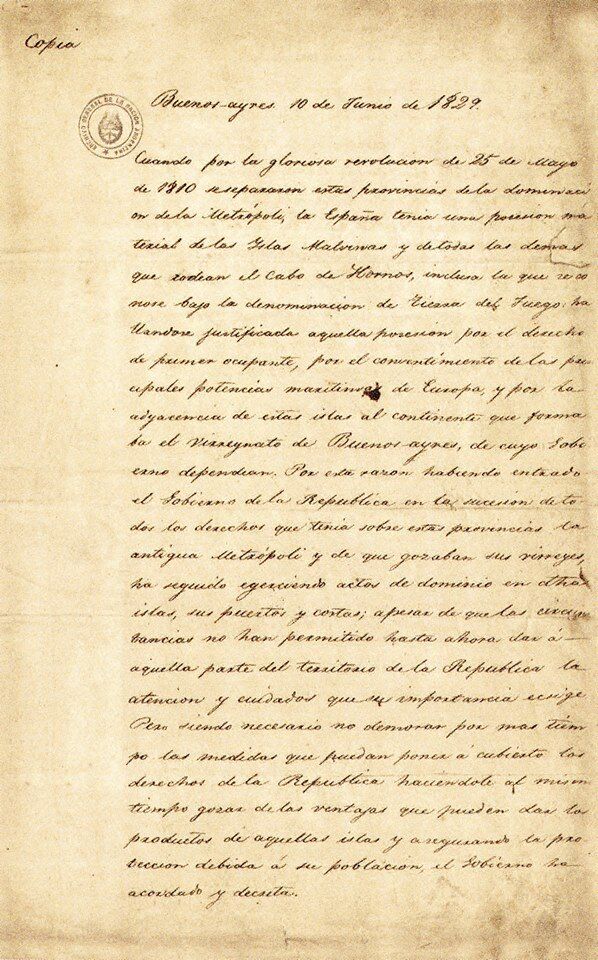 Copia
Buenos-ayres 10 de Junio de 1829.
ARCHIVO GENERAL DE LA NACION ARGENTINA
Cuando por la gloriosa revolucion de 25 de Mayo
de 1810 se separaron estas provincias de la dominaci
on de la Metrópoli, la España tenia una posesion ma
terial de las Islas Malvinas y de todas las demas
que rodean el Cabo de Hornos, inclusa la que se co
nose bajo la denominacion de Tierra del Fuego: ha
llandose justificada aquella posesion por el derecho
de primer ocupante, por el consentimiento de las prin
cipales potencias maritimas de Europa, y por la
adyacencia de estas islas al continente que forma
ba el Virreynato de Buenos-ayres, de cuyo Gobi
erno dependian. Por esta razon habiendo entrado
el Gobierno de la Republica en la sucesion de to
dos los derechos que tenia sobre estas provincias la
antigua Metrópoli y de que gozaban sus virreyes,
ha seguido egerciendo actos de dominio en dhas
islas, sus puertos y costas; apesar de que las circuns
tancias no han permitido hasta ahora dar á
aquella parte del territorio de la Republica la
atencion y cuidados que su importancia ecsige
Pero siendo necesario no demorar por mas tiem
po las medidas que puedan poner á cubierto los
derechos de la Republica haciendole al mismo
tiempo gozar de las ventajas que pueden dar los
productos de aquellas islas y asegurando la pro
teccion debida á su poblacion, el Gobierno ha
acordado y decreta.